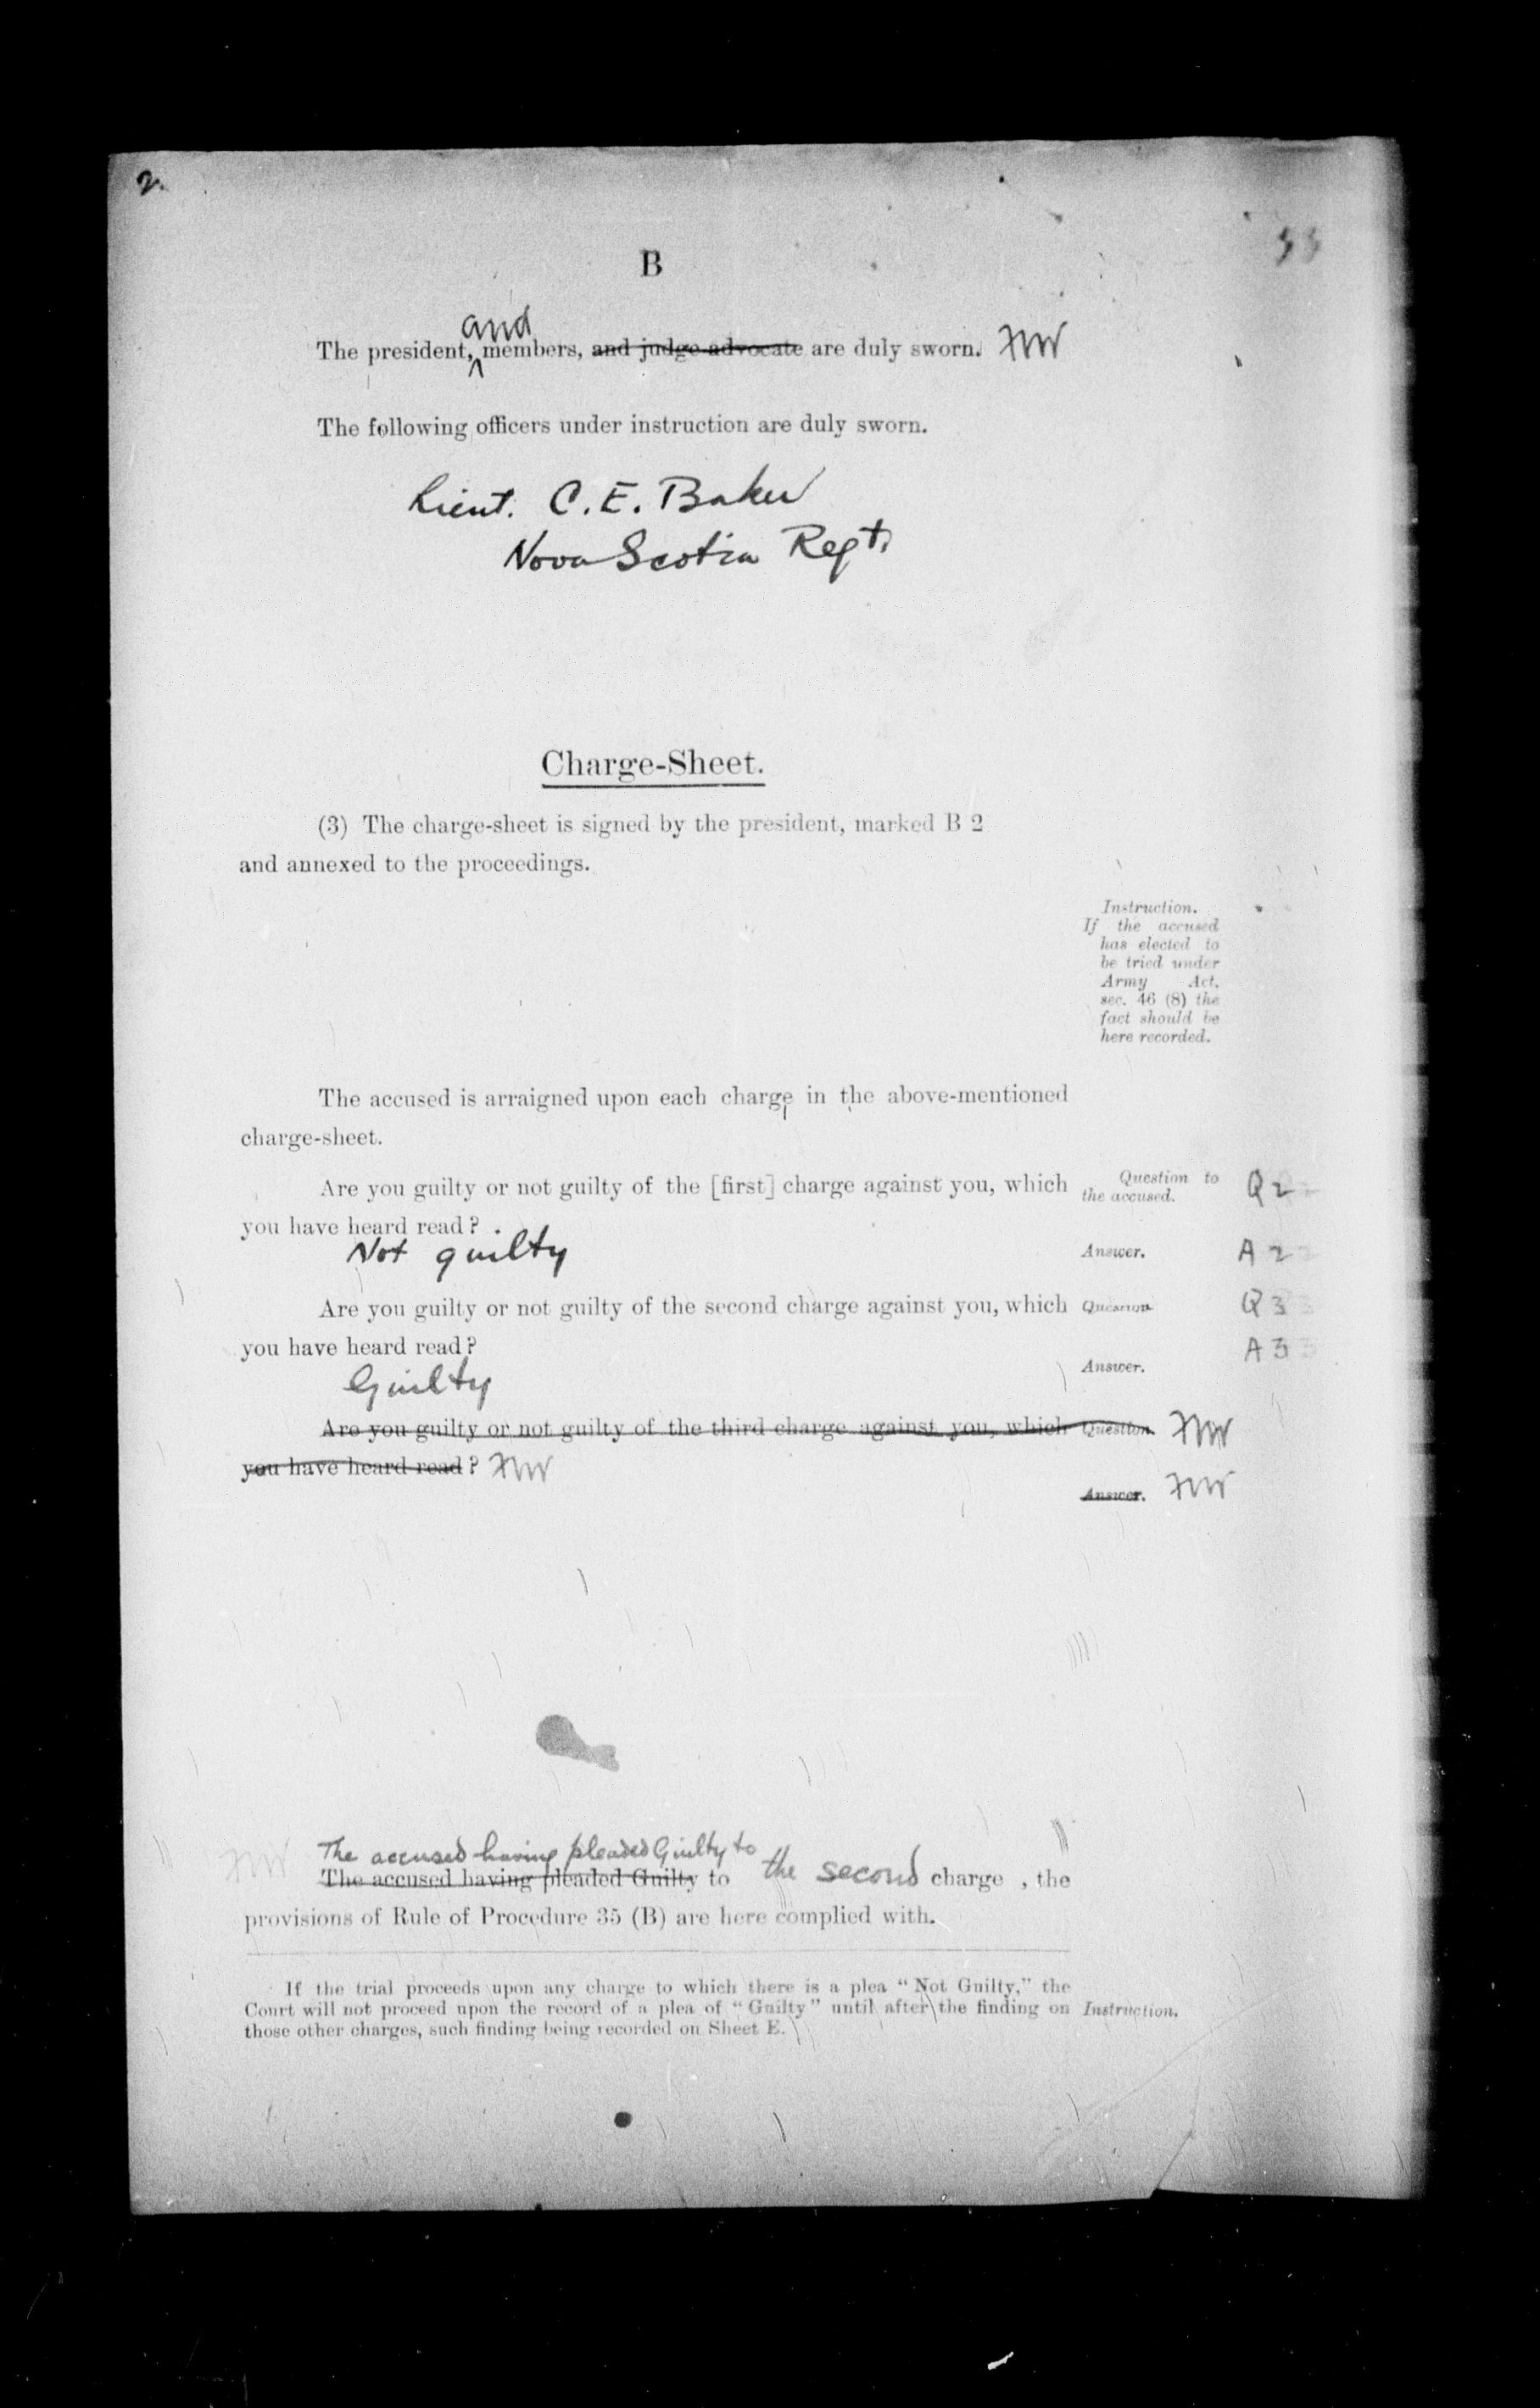 2.
B
and
The president, members, and judge advocate are duly sworn. FW
The following officers under instruction are duly sworn.
Lieut. C. E. Baker
Nova Scotia Regt.
Charge-Sheet.
(3) The charge-sheet is signed by the president, marked B 2
and annexed to the proceedings.
Instruction.
If the accused
has elected to
be tried under
Army Act,
sec. 46 (8) the
fact should be
here recorded.
The accused is arraigned upon each charge in the above-mentioned
charge-sheet.
Are you guilty or not guilty of the [first] charge against you, which Question to the accused. Q 2
you have heard read?
Not guilty Answer. A 2
Are you guilty or not guilty of the second charge against you, which Question Q 3
you have heard read?
Answer. A 3
Guilty
Are you guilty or not guilty of the third charge against you, which Question. FW
you have heard read? FW
Answer. FW
The accused having pleaded Guilty to
FW The accused having pleaded Guilty to the second charge , the
provisions of Rule of Procedure 35 (B) are here complied with.
If the trial proceeds upon any charge to which there is a plea "Not Guilty," the
Court will not proceed upon the record of a plea of "Guilty" until after the finding on Instruction.
those other charges, such finding being recorded on Sheet E.